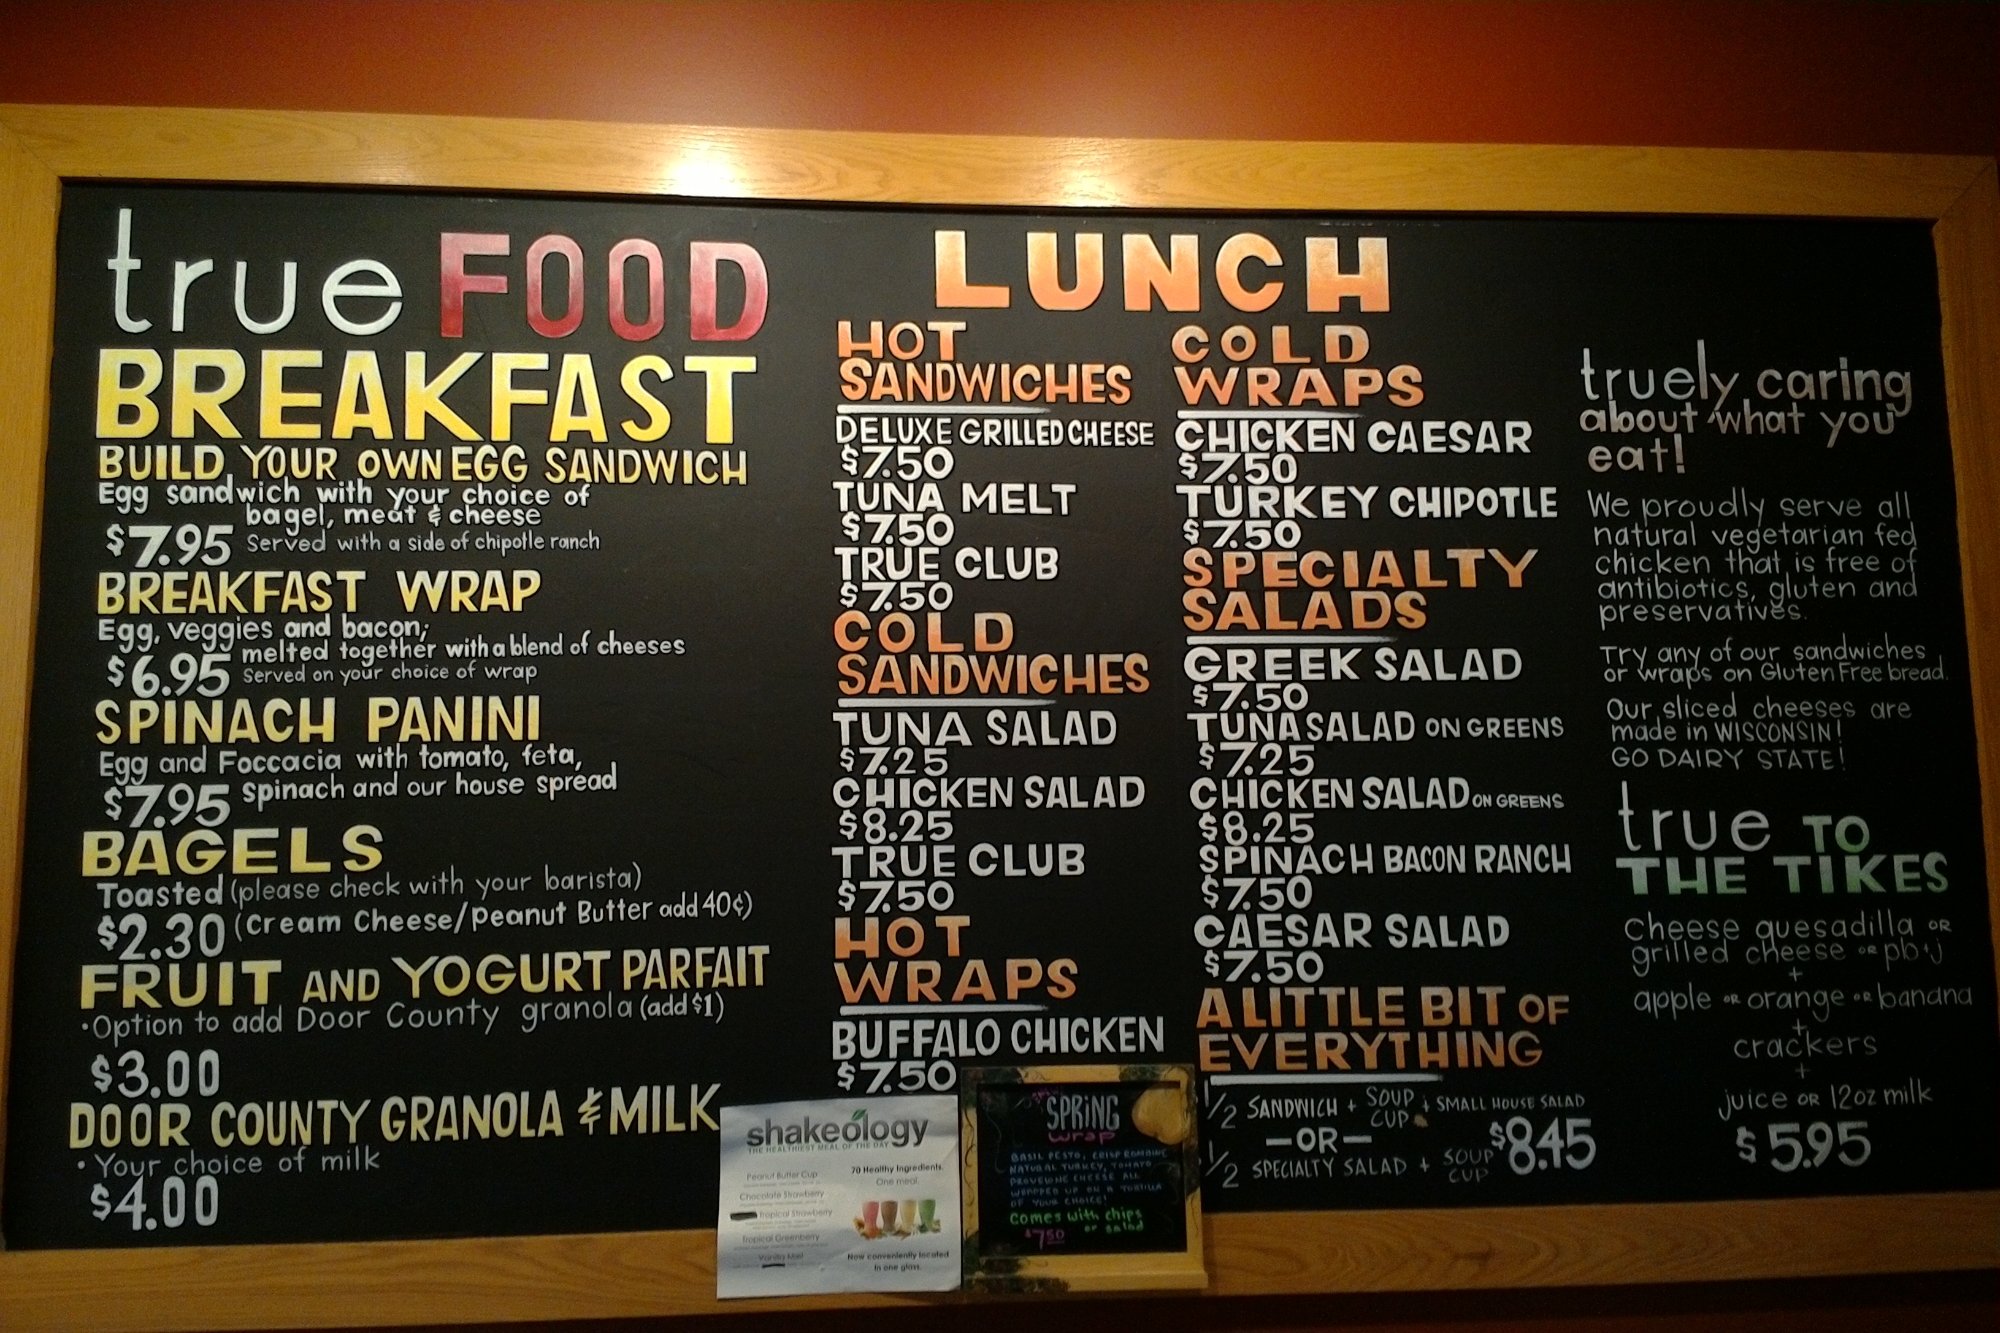 true FOOD
BREAKFAST
BUILD YOUR OWN EGG SANDWICH
Egg sandwich with your choice of
bagel, meat & cheese
$7.95 Served with a side of chipotle ranch
BREAKFAST WRAP
Egg, veggies and bacon;
melted together with a blend of cheeses
$6.95 Served on your choice of wrap
SPINACH PANINI
Egg and Foccacia with tomato, feta,
$7.95 Spinach and our house spread
BAGELS
Toasted (please check with your barista)
$2.30 (Cream Cheese/Peanut Butter add 40¢)
FRUIT AND YOGURT PARFAIT
•Option to add Door County granola (add $1)
$3.00
DOOR COUNTY GRANOLA & MILK
•Your choice of milk
$4.00
LUNCH
HOT
SANDWICHES
DELUXE GRILLED CHEESE
$7.50
TUNA MELT
$7.50
TRUE CLUB
$7.50
COLD
SANDWICHES
TUNA SALAD
$7.25
CHICKEN SALAD
$8.25
TRUE CLUB
$7.50
HOT
WRAPS
BUFFALO CHICKEN
$7.50
COLD
WRAPS
CHICKEN CAESAR
$7.50
TURKEY CHIPOTLE
$7.50
SPECIALTY
SALADS
GREEK SALAD
$7.50
TUNA SALAD ON GREENS
$7.25
CHICKEN SALAD ON GREENS
$8.25
SPINACH BACON RANCH
$7.50
CAESAR SALAD
$7.50
A LITTLE BIT OF
EVERYTHING
1/2 SANDWICH + SOUP CUP + SMALL HOUSE SALAD
—OR— $8.45
1/2 SPECIALTY SALAD + SOUP CUP
truely caring
about what you
eat!
We proudly serve all
natural vegetarian fed
chicken that is free of
antibiotics, gluten and
preservatives.
Try any of our sandwiches
or wraps on Gluten Free bread.
Our sliced cheeses are
made in WISCONSIN!
GO DAIRY STATE!
true TO
THE TIKES
Cheese quesadilla OR
grilled cheese OR pb+j
+
apple OR orange OR banana
+
crackers
+
juice OR 12oz milk
$5.95
shakeology
THE HEALTHIEST MEAL OF THE DAY
Peanut Butter Cup
Chocolate Strawberry
Tropical Strawberry
Tropical Greenberry
70 Healthy Ingredients.
One meal.
Now conveniently located
in one glass.
SPRING
wrap
BASIL PESTO, CRISP ROMAINE
NATURAL TURKEY, TOMATO
PROVOLONE CHEESE ALL
WRAPPED UP IN A TORTILLA
OF YOUR CHOICE!
comes with chips
or salad
$7.50